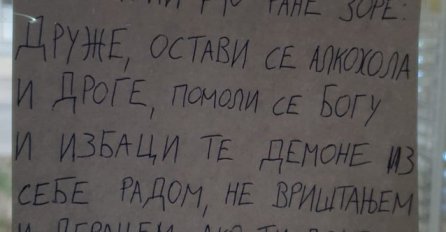 РАНЕ ЗОРЕ:
ДРУЖЕ, ОСТАВИ СЕ АЛКОХОЛА
И ДРОГЕ, ПОМОЛИ СЕ БОГУ
И ИЗБАЦИ ТЕ ДЕМОНЕ ИЗ
СЕБЕ РАДОМ, НЕ ВРИШТАЊЕМ
И ДЕРАЊЕМ. АКО ТИ